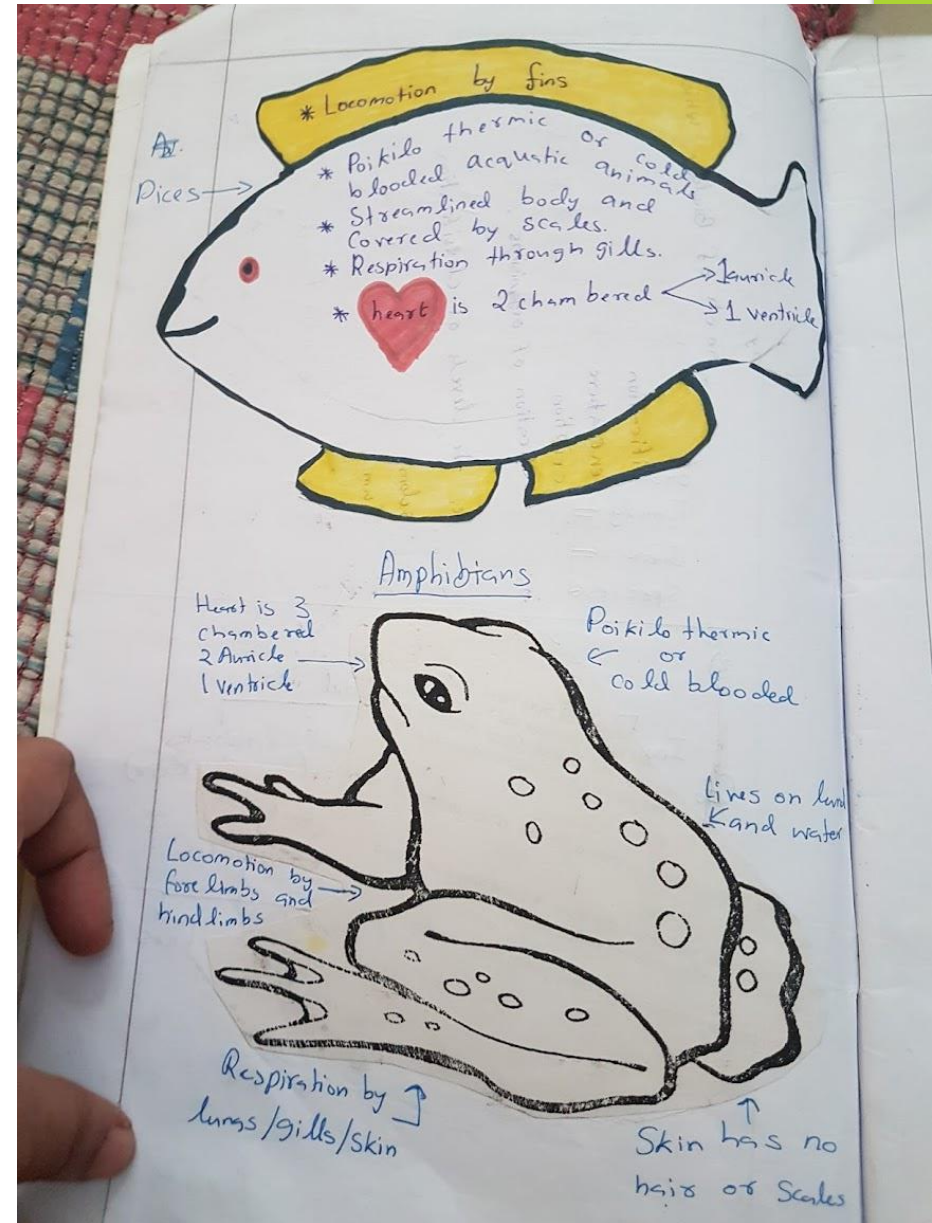 * Locomotion by fins
A).
Pices
* Poikilo thermic or cold
blooded acqustic animals
* Streamlined body and
Covered by scales.
* Respiration through gills.
* heart is 2 chambered
1 auricle
1 ventricle
Amphibians
Heart is 3
chambered
2 Auricle
1 ventricle
Poikilo thermic
or
cold blooded
Lives on land
and water
Locomotion by
fore limbs and
hind limbs
Respiration by
lungs/gills/skin
Skin has no
hair or Scales